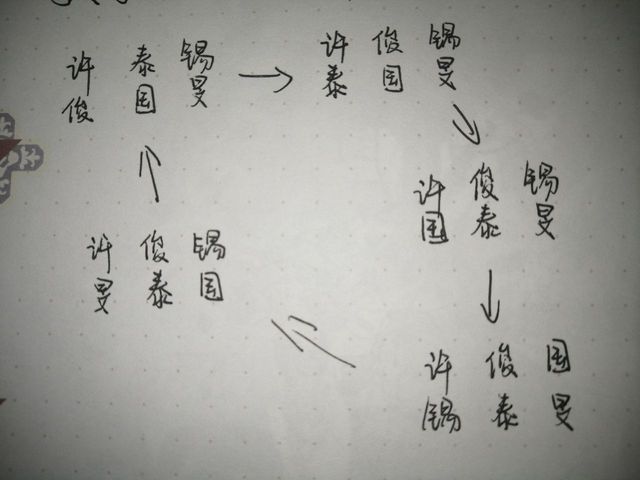 许 泰 锡
俊 国 旻
许 俊 锡
泰 国 旻
许 俊 锡
国 泰 旻
许 俊 国
锡 泰 旻
许 俊 锡
旻 泰 国